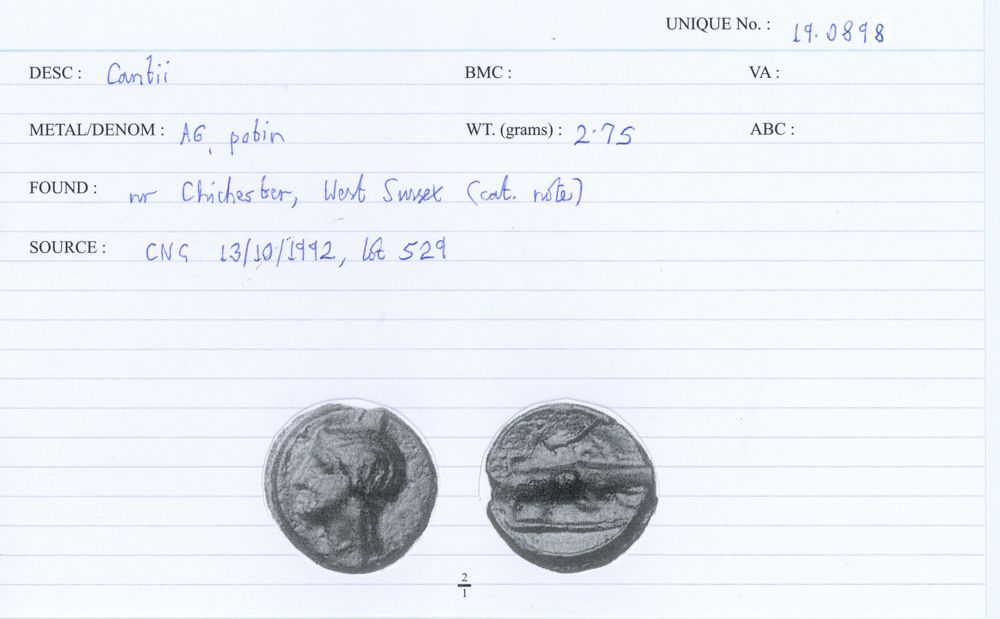 UNIQUE No. : 19.0898
DESC : Cantii BMC : VA :
METAL/DENOM : AG, potin WT. (grams) : 2.75 ABC :
FOUND : nr Chichester, West Sussex (cat. note)
SOURCE : CNG 13/10/1992, lot 529
2
1